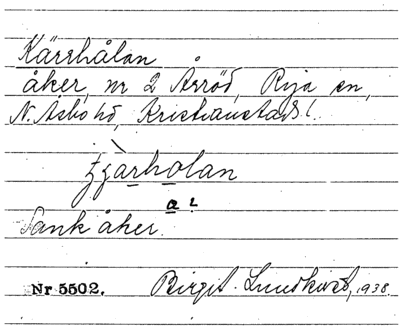 Kärrhålan
åker, nr 2 Åsröd, Rya sn,
N. Åsbo hd, Kristianstads l.
tjàrholan
a?
Sank åker.
Nr 5502. Birgit Lundkvist, 1938.